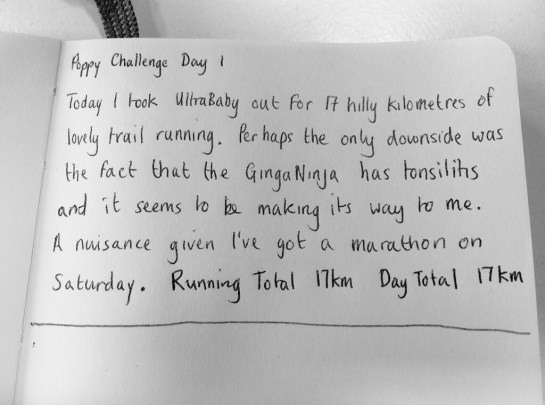 Poppy Challenge Day 1
Today I took UltraBaby out for 17 hilly kilometres of
lovely trail running. Perhaps the only downside was
the fact that the GingaNinja has tonsilitis
and it seems to be making its way to me.
A nuisance given I've got a marathon on
Saturday. Running Total 17km Day Total 17km